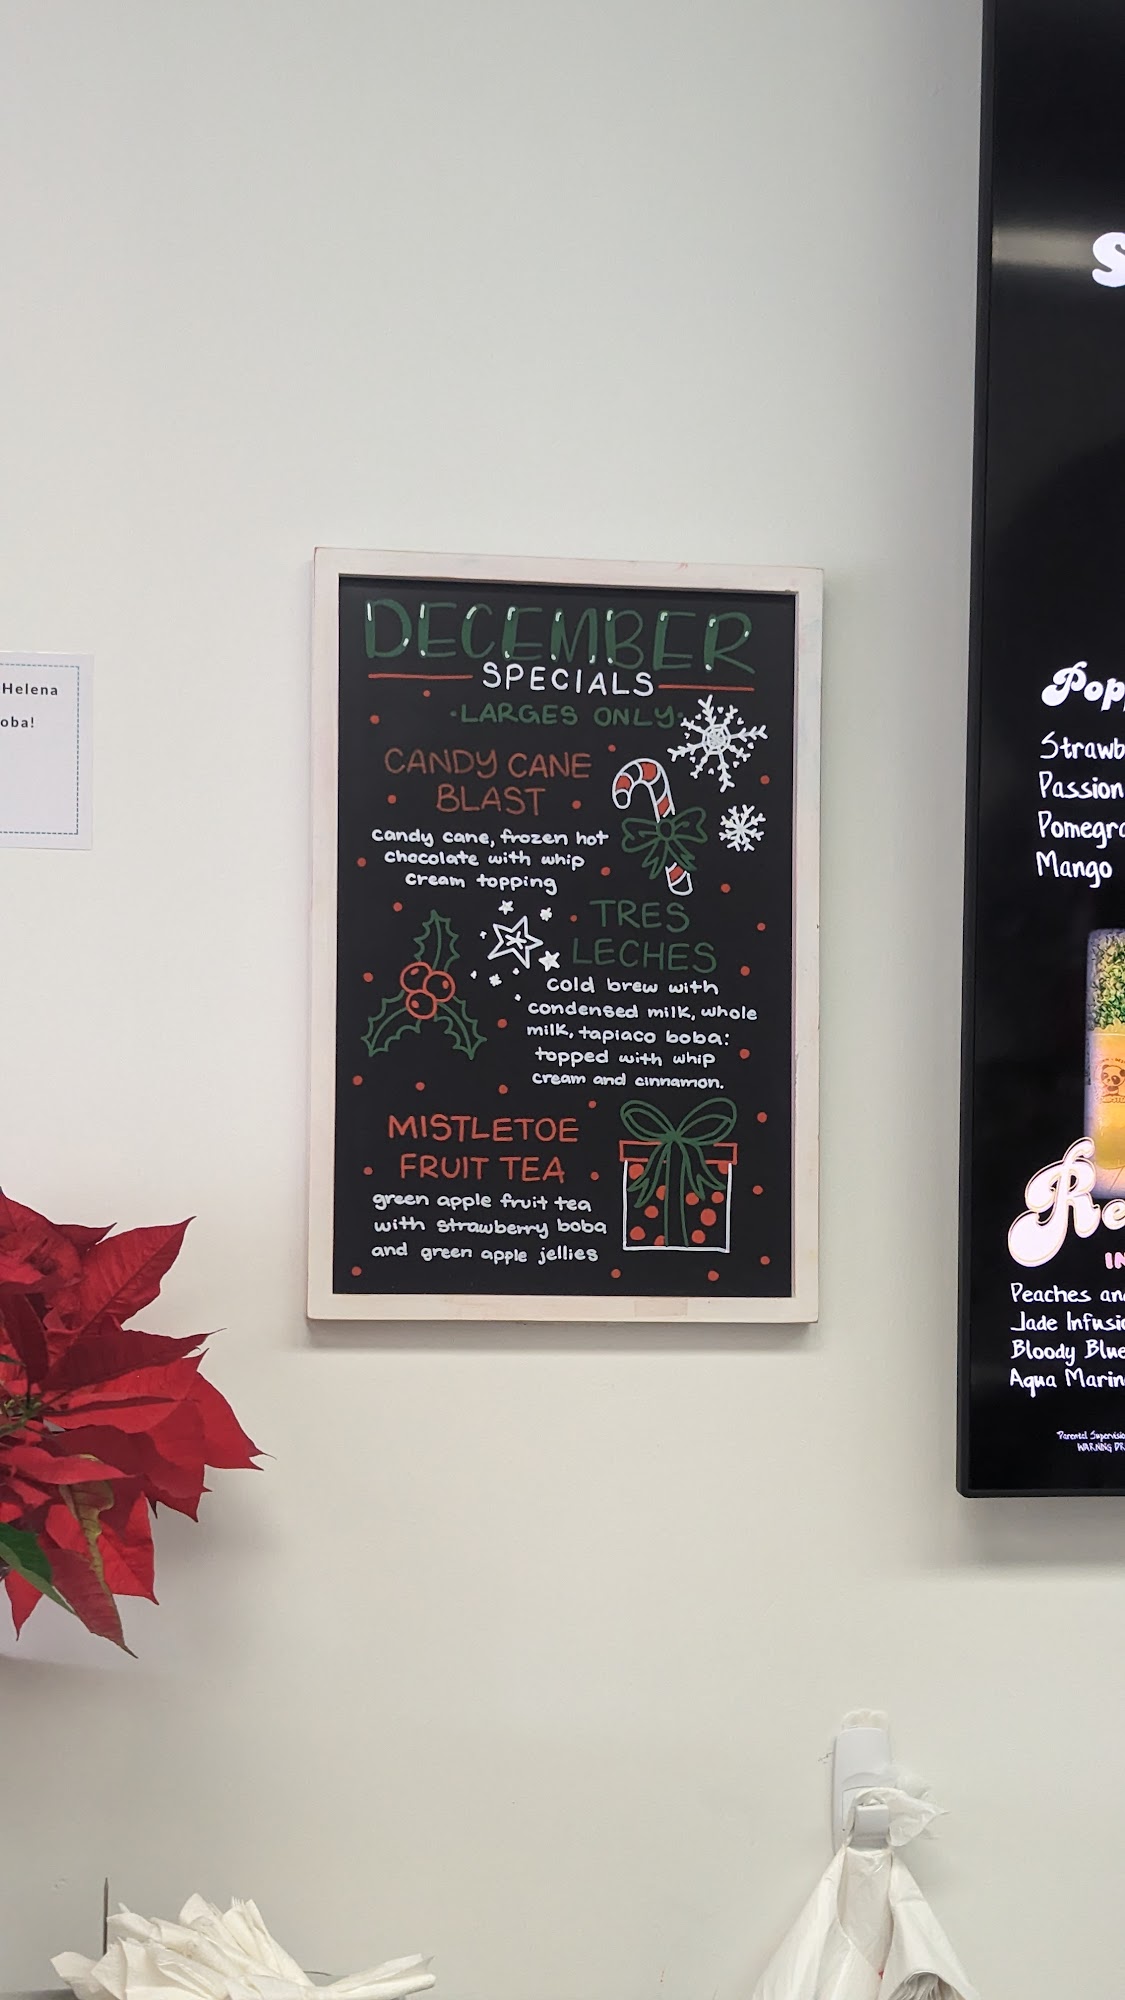 Helena
oba!
DECEMBER
SPECIALS
·LARGES ONLY·
CANDY CANE
BLAST
candy cane, frozen hot
chocolate with whip
cream topping
TRES
LECHES
cold brew with
condensed milk, whole
milk, tapiaco boba:
topped with whip
cream and cinnamon.
MISTLETOE
FRUIT TEA
green apple fruit tea
with strawberry boba
and green apple jellies
S
Pop
Strawb
Passion
Pomegra
Mango
Re
IN
Peaches an
Jade Infusi
Bloody Blue
Aqua Marin
Parental Supervisio
WARNING DR